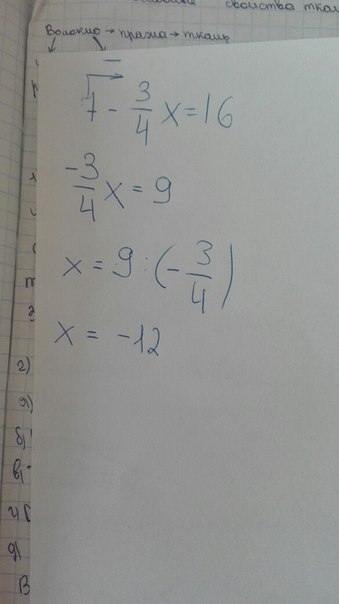 свойства тка
Волокно → пряжа → ткань
7 - 3/4 x = 16
-3/4 x = 9
x = 9 : (- 3/4)
x = -12
г)
д)
б)
в)
д)
В